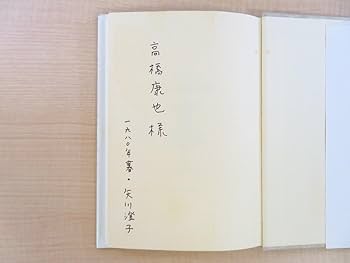 高橋康也様
一九八〇年暮・矢川澄子